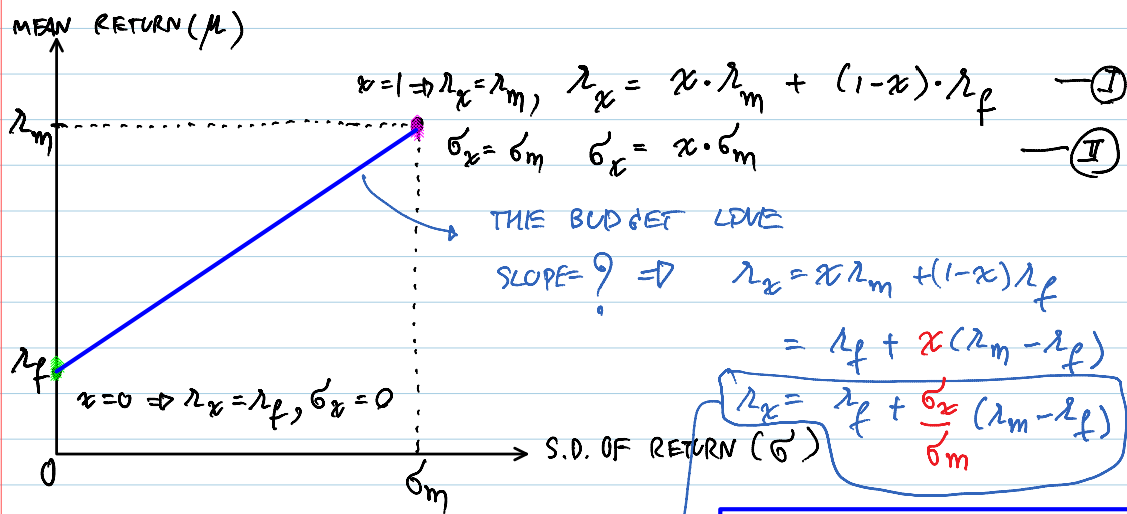 MEAN RETURN (μ)
x=1 ⇒ r_x = r_m, r_x = x·r_m + (1-x)·r_f —Ⓘ
r_m
σ_x = σ_m σ_x = x·σ_m —Ⓘ︎Ⓘ︎
THE BUDGET LINE
SLOPE = ? ⇒ r_x = x r_m + (1-x) r_f
= r_f + x (r_m - r_f)
r_f
x=0 ⇒ r_x = r_f, σ_x = 0
r_x = r_f + σ_x/σ_m (r_m - r_f)
S.D. OF RETURN (σ)
0
σ_m